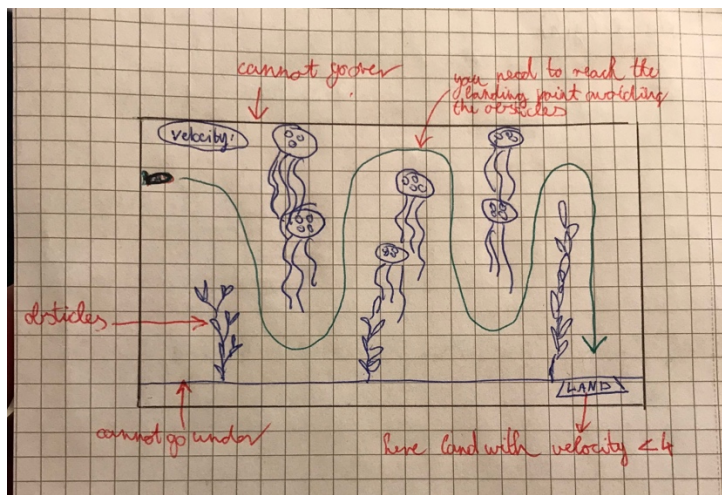 cannot go over
you need to reach the
landing point avoiding
the obsticles
velocity:
obsticles
LAND
cannot go under
here land with velocity <4